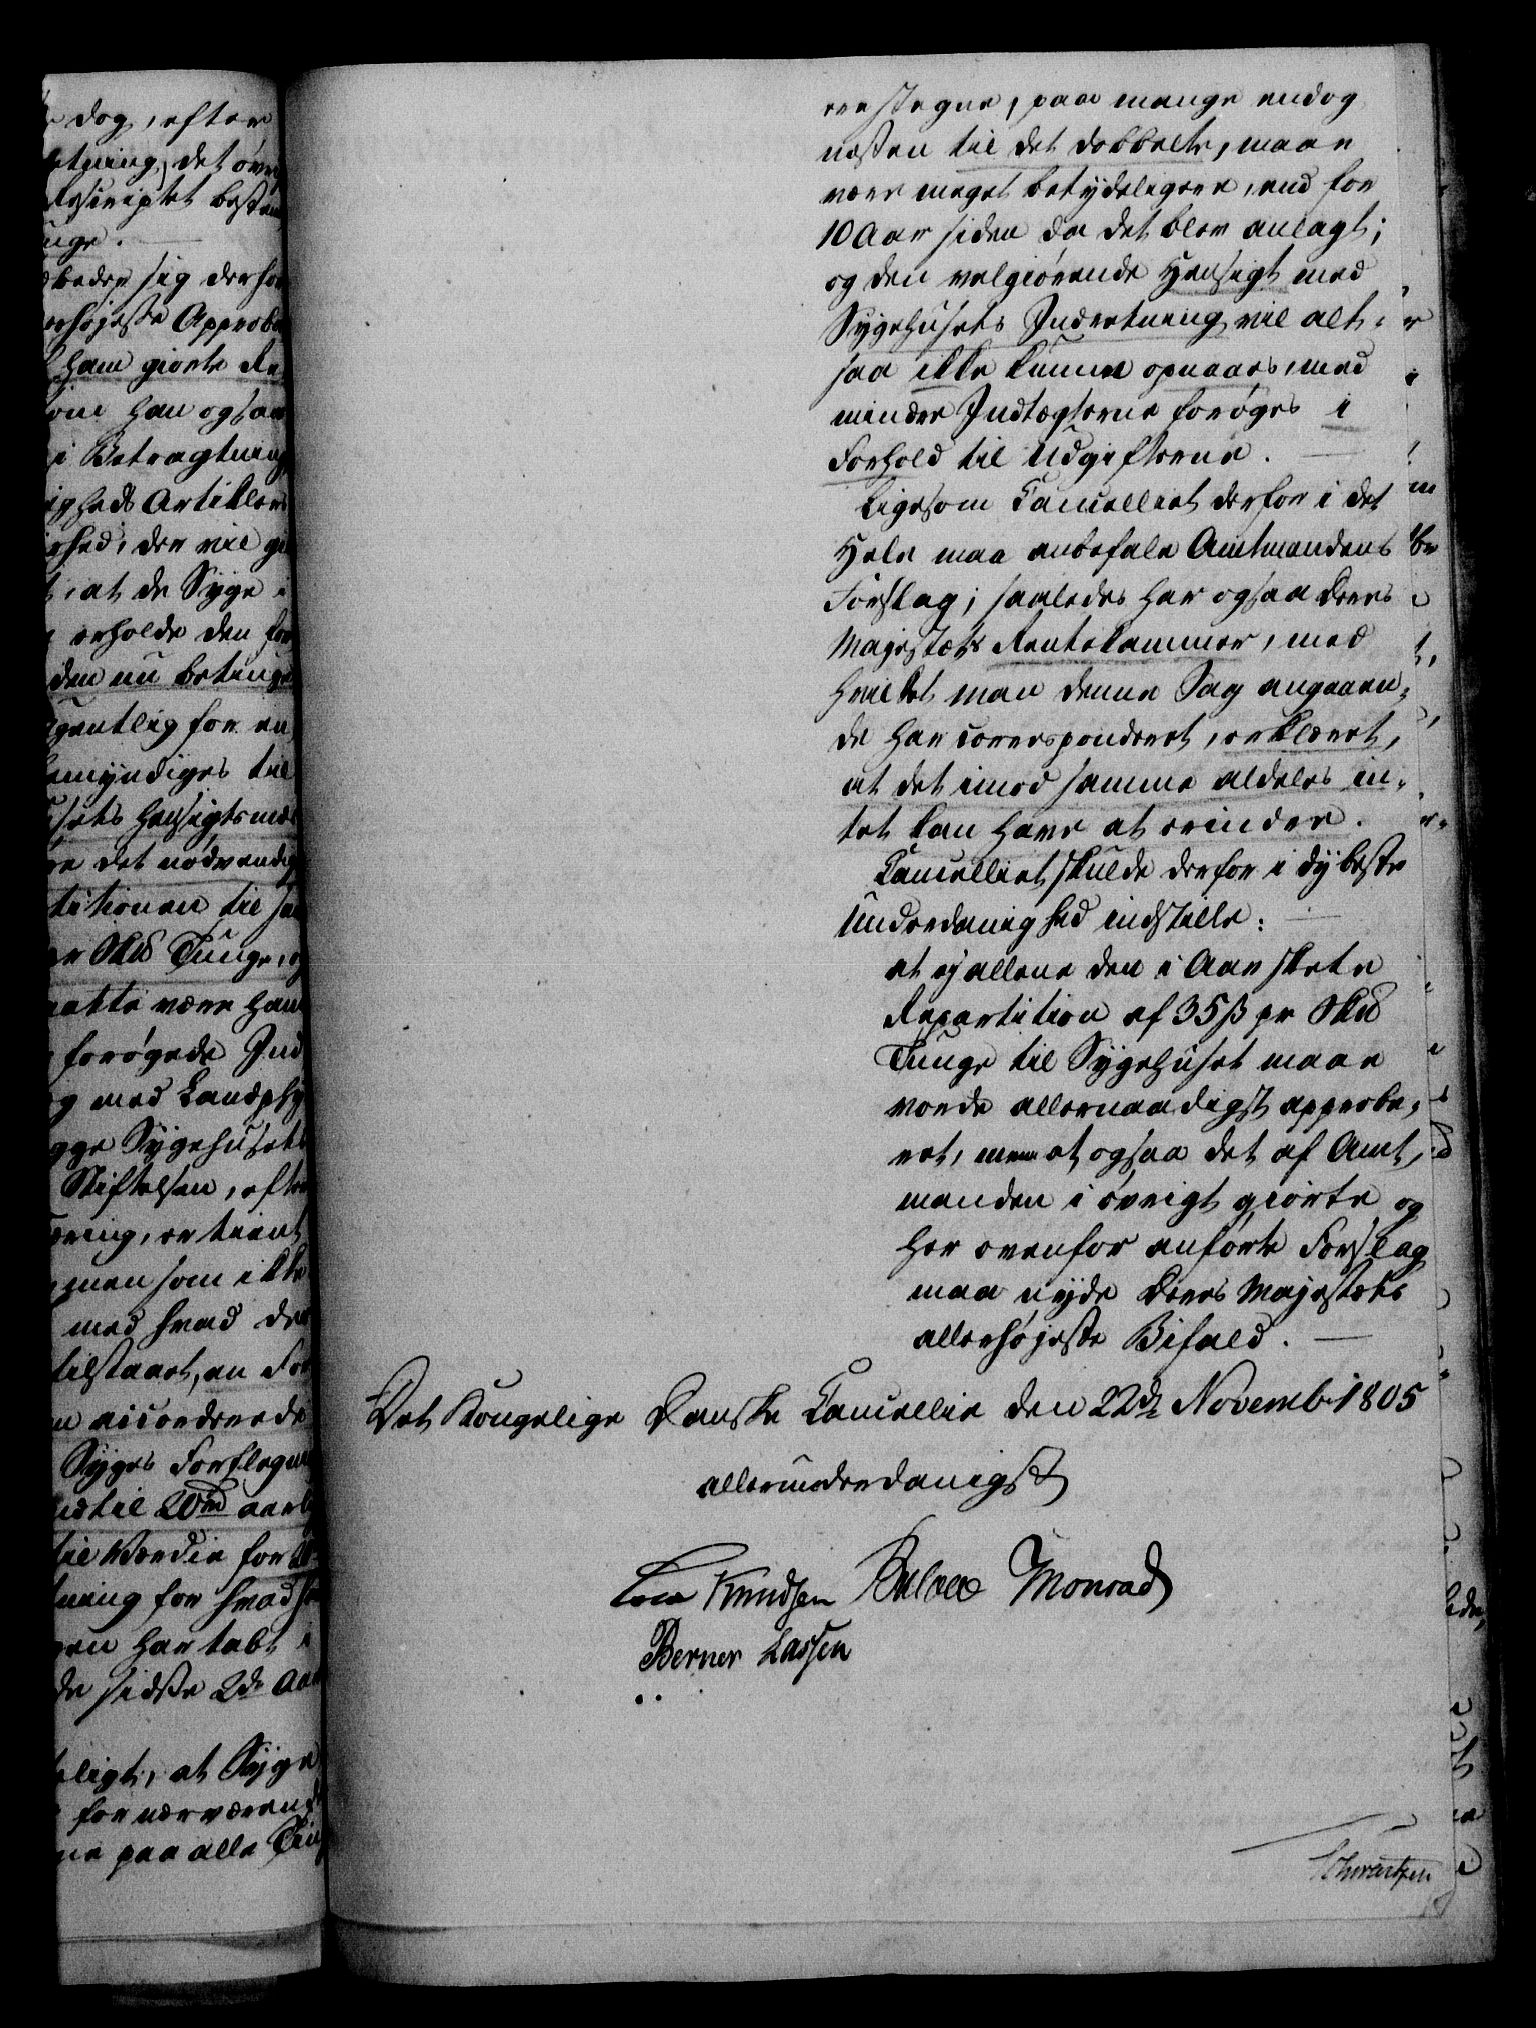 dog, efter
etning, det øvri
Rescriptet bestem
unge.
beder sig derfor
erhøjeste Approba
ham giorte Re
om han ogsaa
i Betragtning
igheds Artikler
hed, der vil gi
, at de Syge i
erholde den for
den nu betinge
gentlig for en
emyndiges til
sets hensigtsmæs
re det nødvendig
titionen til saa
er Skd Tynge, og
matte være han
forøgede Ind
og med Landphy
gge Sygehusets
Stiftelsen, efter
æring, er tient
men som ikke
med hvad der
tilstaaet, en For
n accorderede
Syges Forflegni
indtil 20 rd aarl
til Værdie for
tning for hvad
gen har tabt i
de sidste 2de Aar
eligt, at Syge
for nærværende
ne paa alle Tin
ere stegne, paa mange endog
næsten til det dobbelte, maae
være meget betydeligere, end for
10 Aar siden da det blev anlagt;
og den velgiørende Hensigt med
Sygehusets Indretning vil alt-
saa ikke kunne opnaaes, med
mindre Indtægterne forøges i
Forhold til Udgifterne.
Ligesom Cancelliet derfor i det
Hele maa anbefale Amtmandens
Forslag; saaledes har ogsaa Deres
Majestæts Rentekammer, med
hvilket man denne Sag angaaen-
de har correspondert, erklæret,
at det imod samme aldeles in-
tet kan have at erindre.
Cancelliet skulde derfor i dybeste
Underdanighed indstille:
at ej allene den i Aar skete
Repartition af 35 ß pr Skd
Tynge til Sygehuset maae
vorde allernaadigst approbe-
ret, men at ogsaa det af Amt-
manden i øvrigt giorte og
her ovenfor anførte Forslag
maa nyde Deres Majestæts
allerhøjeste Bifald.
Det Kongelige Danske Cancellie den 22de Novembr 1805
allerunderdanigst
Knudsen Bülow Monrad
Berner Lassen
Schwartzen